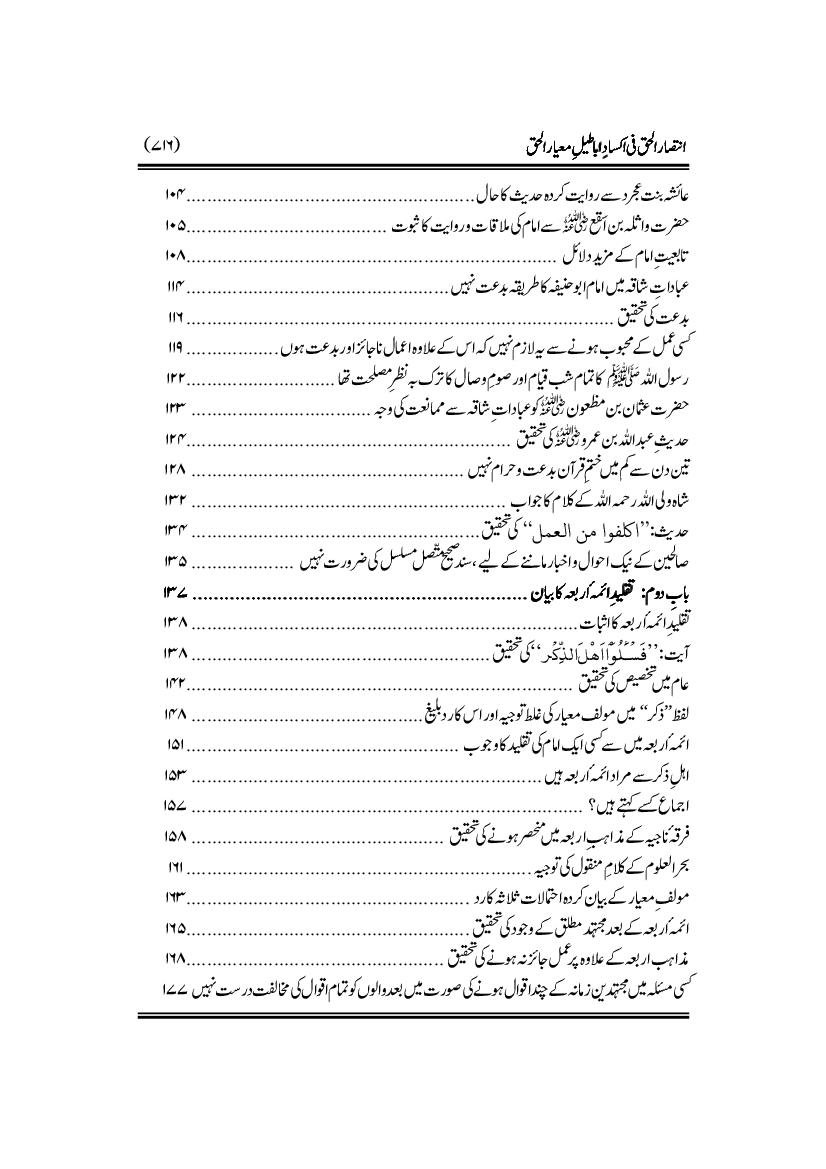 انتصار الحق فی اکساد اباطیلِ معیار الحق (۷۱۶)
عائشہ بنت عجرد سے روایت کردہ حدیث کا حال ۱۰۴
حضرت واثلہ بن اسقع رضی اللہ عنہ سے امام کی ملاقات و روایت کا ثبوت ۱۰۵
تابعیتِ امام کے مزید دلائل ۱۰۸
عباداتِ شاقہ میں امام ابو حنیفہ کا طریقہ بدعت نہیں ۱۱۴
بدعت کی تحقیق ۱۱۶
کسی عمل کے محبوب ہونے سے یہ لازم نہیں کہ اس کے علاوہ اعمال ناجائز اور بدعت ہوں ۱۱۹
رسول اللہ ﷺ کا تمام شب قیام اور صومِ وصال کا ترک بہ نظرِ مصلحت تھا ۱۲۲
حضرت عثمان بن مظعون رضی اللہ عنہ کو عباداتِ شاقہ سے ممانعت کی وجہ ۱۲۳
حدیثِ عبد اللہ بن عمرو رضی اللہ عنہ کی تحقیق ۱۲۴
تین دن سے کم میں ختمِ قرآن بدعت و حرام نہیں ۱۲۸
شاہ ولی اللہ رحمہ اللہ کے کلام کا جواب ۱۳۲
حدیث: ’’اکلفوا من العمل‘‘ کی تحقیق ۱۳۴
صالحین کے نیک احوال و اخبار ماننے کے لیے، سند صحیح متّصل مسلسل کی ضرورت نہیں ۱۳۵
بابِ دوم: تقلیدِ ائمۂ اربعہ کا بیان ۱۳۷
تقلیدِ ائمۂ اربعہ کا اثبات ۱۳۸
آیت: ’’فَسْـَٔلُوْۤا اَهْلَ الذِّكْر‘‘ کی تحقیق ۱۳۸
عام میں تخصیص کی تحقیق ۱۴۲
لفظ ’’ذکر‘‘ میں مولف معیار کی غلط توجیہ اور اس کا ردِ بلیغ ۱۴۸
ائمۂ اربعہ میں سے کسی ایک امام کی تقلید کا وجوب ۱۵۱
اہلِ ذکر سے مراد ائمۂ اربعہ ہیں ۱۵۳
اجماع کسے کہتے ہیں؟ ۱۵۷
فرقۂ ناجیہ کے مذاہبِ اربعہ میں منحصر ہونے کی تحقیق ۱۵۸
بحر العلوم کے کلامِ منقول کی توجیہ ۱۶۱
مولفِ معیار کے بیان کردہ احتمالات ثلاثہ کا رد ۱۶۳
ائمۂ اربعہ کے بعد مجتہد مطلق کے وجود کی تحقیق ۱۶۵
مذاہب اربعہ کے علاوہ پر عمل جائز نہ ہونے کی تحقیق ۱۶۸
کسی مسئلہ میں مجتہدین زمانہ کے چند اقوال ہونے کی صورت میں بعد والوں کو تمام اقوال کی مخالفت درست نہیں ۱۷۷